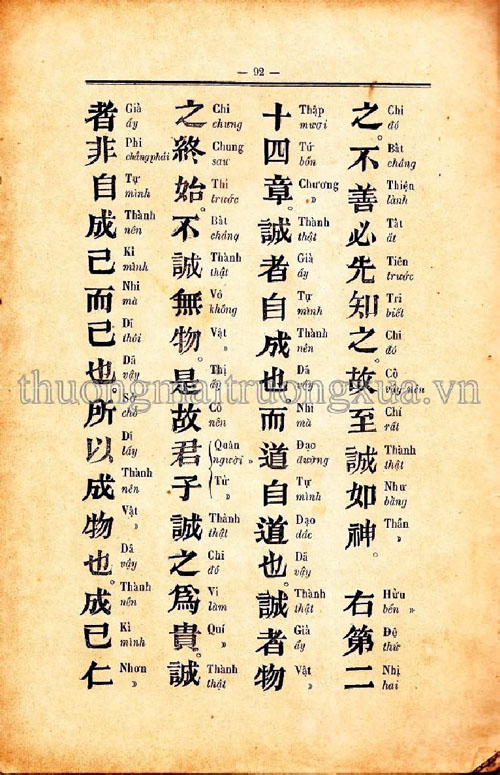 — 92 —
之。不善必先知之。故至誠如神。右第二
Chi Bất Thiện Tất Tiên Tri Chi Cộ Chí Thành Như Thần Hữu Đệ Nhị
đó chẳng lành ắt trước biết đó vậy nên rất thật bằng » bến » thứ hai
十四章。誠者自成也而道自道也。誠者物
Thập Tứ Chương Thành Giả Tự Thành Dã Nhi Đạo Tự Đạo Dã Thành Giả Vật
mươi bốn » thật ấy mình nên vậy mà đường mình dắc vậy thật ấy »
之終始。不誠無物。是故君子誠之爲貴。誠
Chi Chung Thỉ Bất Thành Vô Vật Thị Cố Quân Tử Thành Chi Vi Quí Thành
chưng sau trước chẳng thật không » ấy nên người » » thật đó làm » thật
者非自成己而已也。所以成物也。成己仁
Giả Phi Tự Thành Kỉ Nhi Dĩ Dã Sở Dĩ Thành Vật Dã Thành Kỉ Nhơn
ấy chẳng phải mình nên mình mà thôi vậy chỗ lấy nên » vậy nên mình »
thuongmaitruongxua.vn